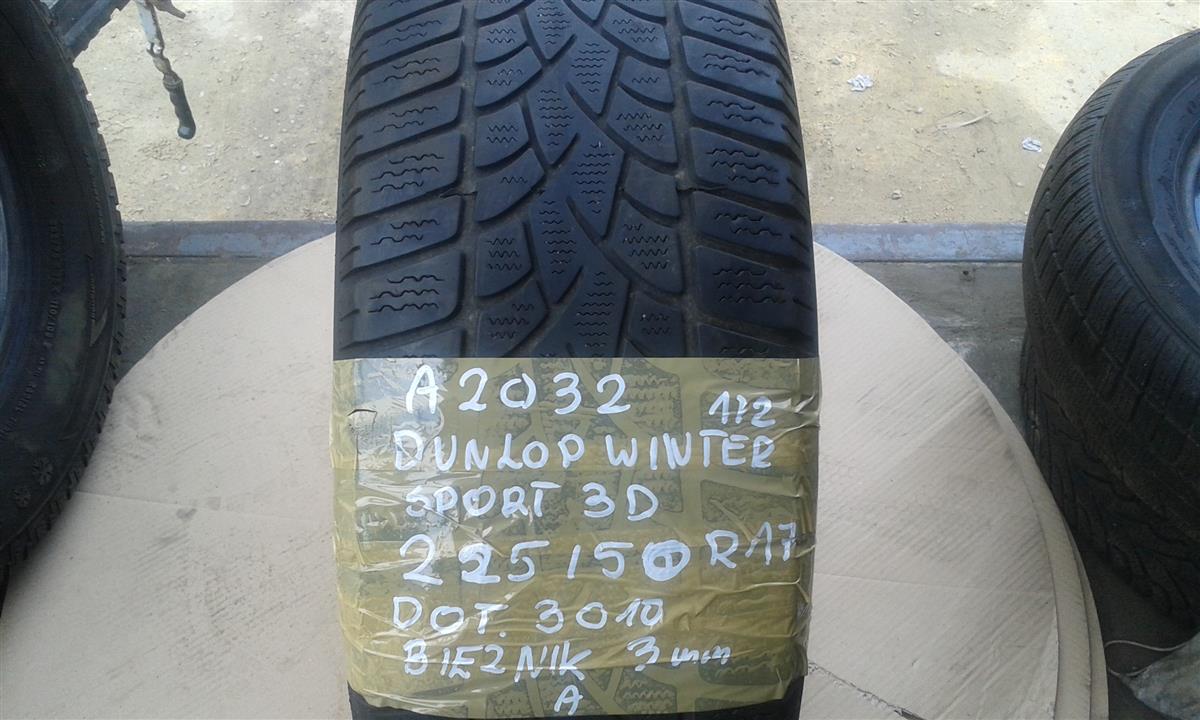 A2032
1/2
DUNLOP WINTER
SPORT 3D
225/50 R17
DOT. 3010
BIEŻNIK 3mm
A